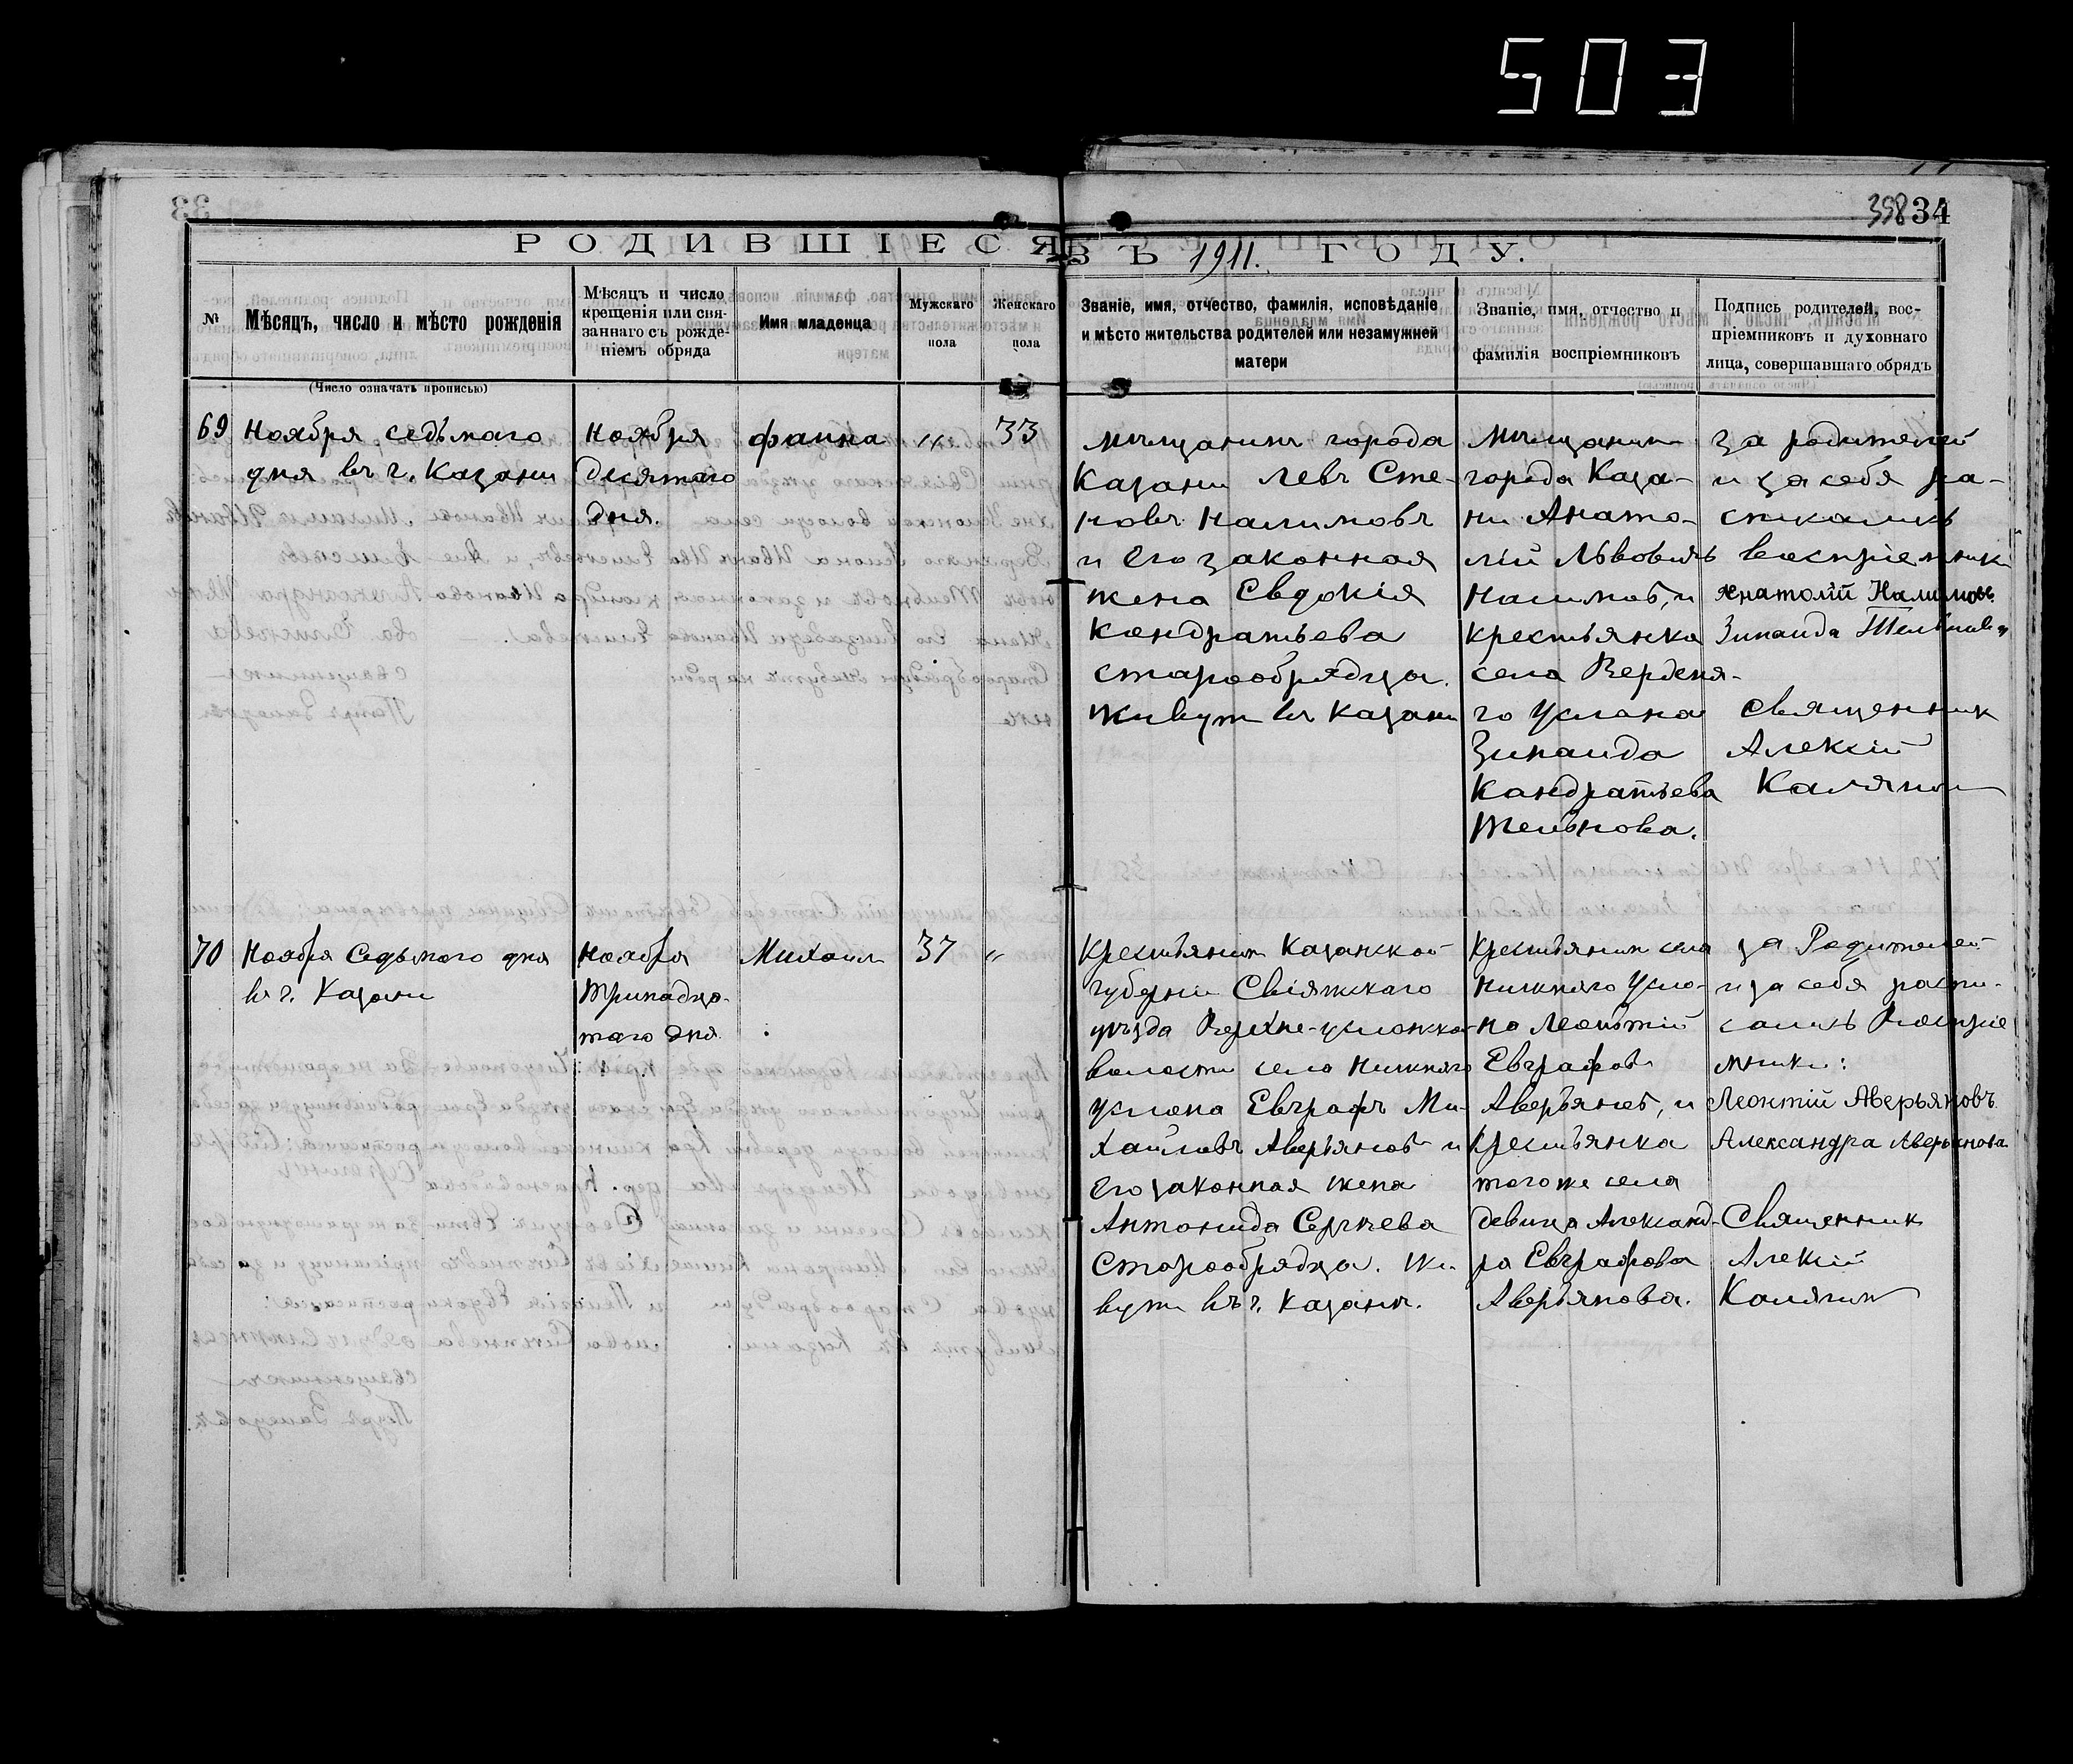 503
398 34
РОДИВШІЕСЯ ВЪ 1911. ГОДУ.
№
Мѣсяцъ, число и мѣсто рожденія
(Число означать прописью)
Мѣсяцъ и число
крещенія или свя-
заннаго съ рожде-
ніемъ обряда
Имя младенца
Мужскаго
пола
Женскаго
пола
Званіе, имя, отчество, фамилія, исповѣданіе
и мѣсто жительства родителей или незамужней
матери
Званіе, имя, отчество и
фамилія воспріемниковъ
Подпись родителей, вос-
пріемниковъ и духовнаго
лица, совершавшаго обрядъ
69
Ноября седьмаго
дня въ г. Казани
Ноября
десятаго
дня.
фаина
"
33
мѣщанинъ города
Казани Левъ Сте-
новъ Налимовъ
и его законная
жена Евдокія
Кондратьева
старообрядцы.
живут въ Казани
Мѣщанин
города Каза-
ни Анато-
лій Львовичъ
Налимов, и
крестьянка
села Верхня-
го Услона
Зинаида
Кандратьева
Тельнова.
за родителей
и за себя ра-
списались
воспріемники
Анатолій Налимовъ
Зинаида Тельнова
Священник
Алексій
Калягин
70
Ноября Седьмого дня
въ г. Казани
Ноября
тринадца-
таго дня
Михаил
37
"
Крестьянин Казанской
губерніи Свіяжскаго
уѣзда Верхне-услонской
волости село Нижняго
Услона Евграфъ Ми-
хайловъ Аверьянов и
его законная жена
Антонида Сергѣева
Старообрядцы. Жи-
вут въ г. Казани.
Крестьянин села
Нижняго Усло-
на Леонтій
Евграфов
Аверьянов, и
Крестьянка
того же села
девица Александ-
ра Евграфова
Аверьянова.
за Родителей
и за себя распи-
сались Воспріе
мники:
Леонтій Аверьяновъ
Александра Аверьянова
Священник
Алексій
Калягин